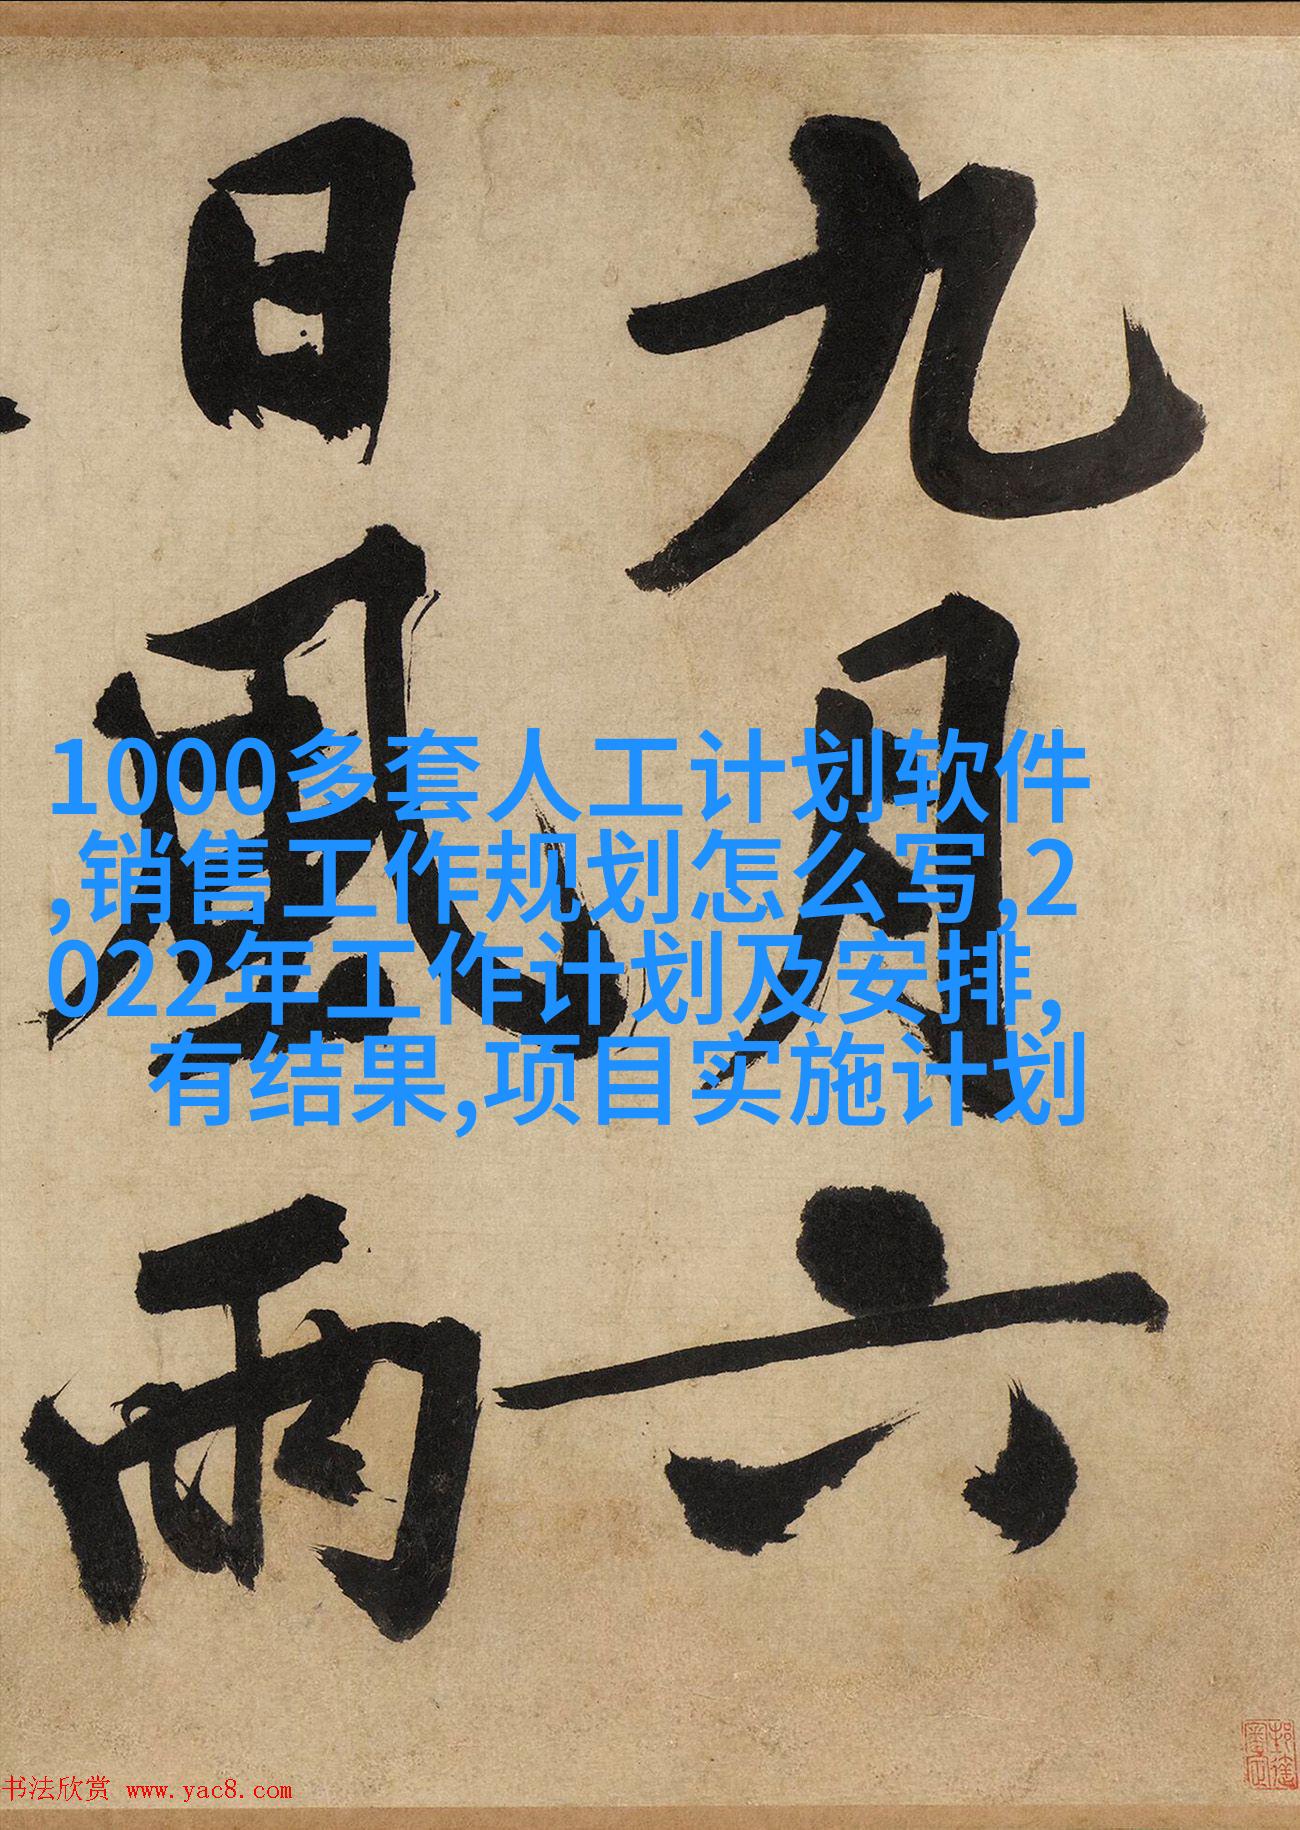 九月六
日風雨
1000多套人工计划软件
,销售工作规划怎么写,2
022年工作计划及安排,
有结果,项目实施计划
书法欣赏 www.yac8.com